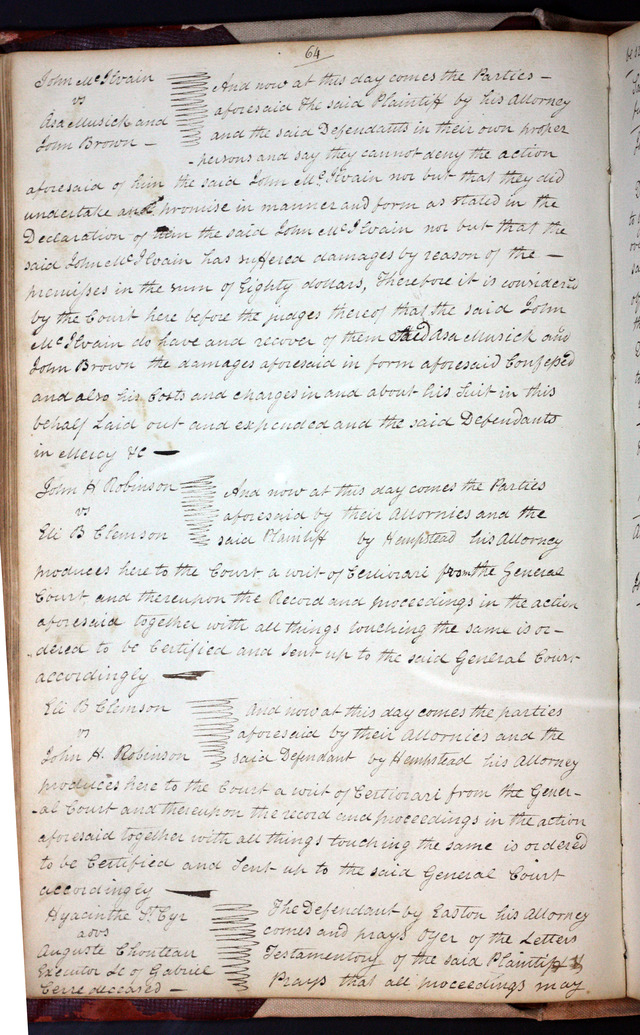 64
John McIlvain
vs
Asa Musick and
John Brown —
And now at this day comes the Parties —
aforesaid the said Plaintiff by his Attorney
and the said Defendants in their own proper
persons and say they cannot deny the action
aforesaid of him the said John McIlvain nor but that they did
undertake and promise in manner and form as stated in the
Declaration of him the said John McIlvain nor but that the
said John McIlvain has suffered damages by reason of the —
premisses in the sum of Eighty dollars, Therefore it is considered
by the Court here before the judges thereof that the said John
McIlvain do have and recover of them said Asa Musick and
John Brown the damages aforesaid in form aforesaid Confessed
and also his Costs and charges in and about his Suit in this
behalf Laid out and expended and the said Defendants
in Mercy &c —
John H Robinson
vs
Eli B Clemson
And now at this day comes the Parties
aforesaid by their Attornies and the
said Plaintiff by Hempstead his Attorney
produces here to the Court a writ of Certiorari from the General
Court and thereupon the Record and proceedings in the action
aforesaid together with all things touching the same is or-
dered to be Certified and Sent up to the said General Court
accordingley —
Eli B Clemson
vs
John H. Robinson
And now at this day comes the parties
aforesaid by their Attornies and the
said Defendant by Hempstead his Attorney
produces here to the Court a writ of Certiorari from the Gener-
-al Court and thereupon the record and proceedings in the action
aforesaid together with all things touching the same is ordered
to be Certified and Sent up to the said General Court
accordingley —
Hyacinthe St. Cyr
advs
Auguste Chouteau
Executor &c of Gabriel
Cerre deceased —
The Defendant by Easton his Attorney
comes and prays Oyer of the Letters
Testamentory of the said Plaintiff &
Prays that all proceedings may